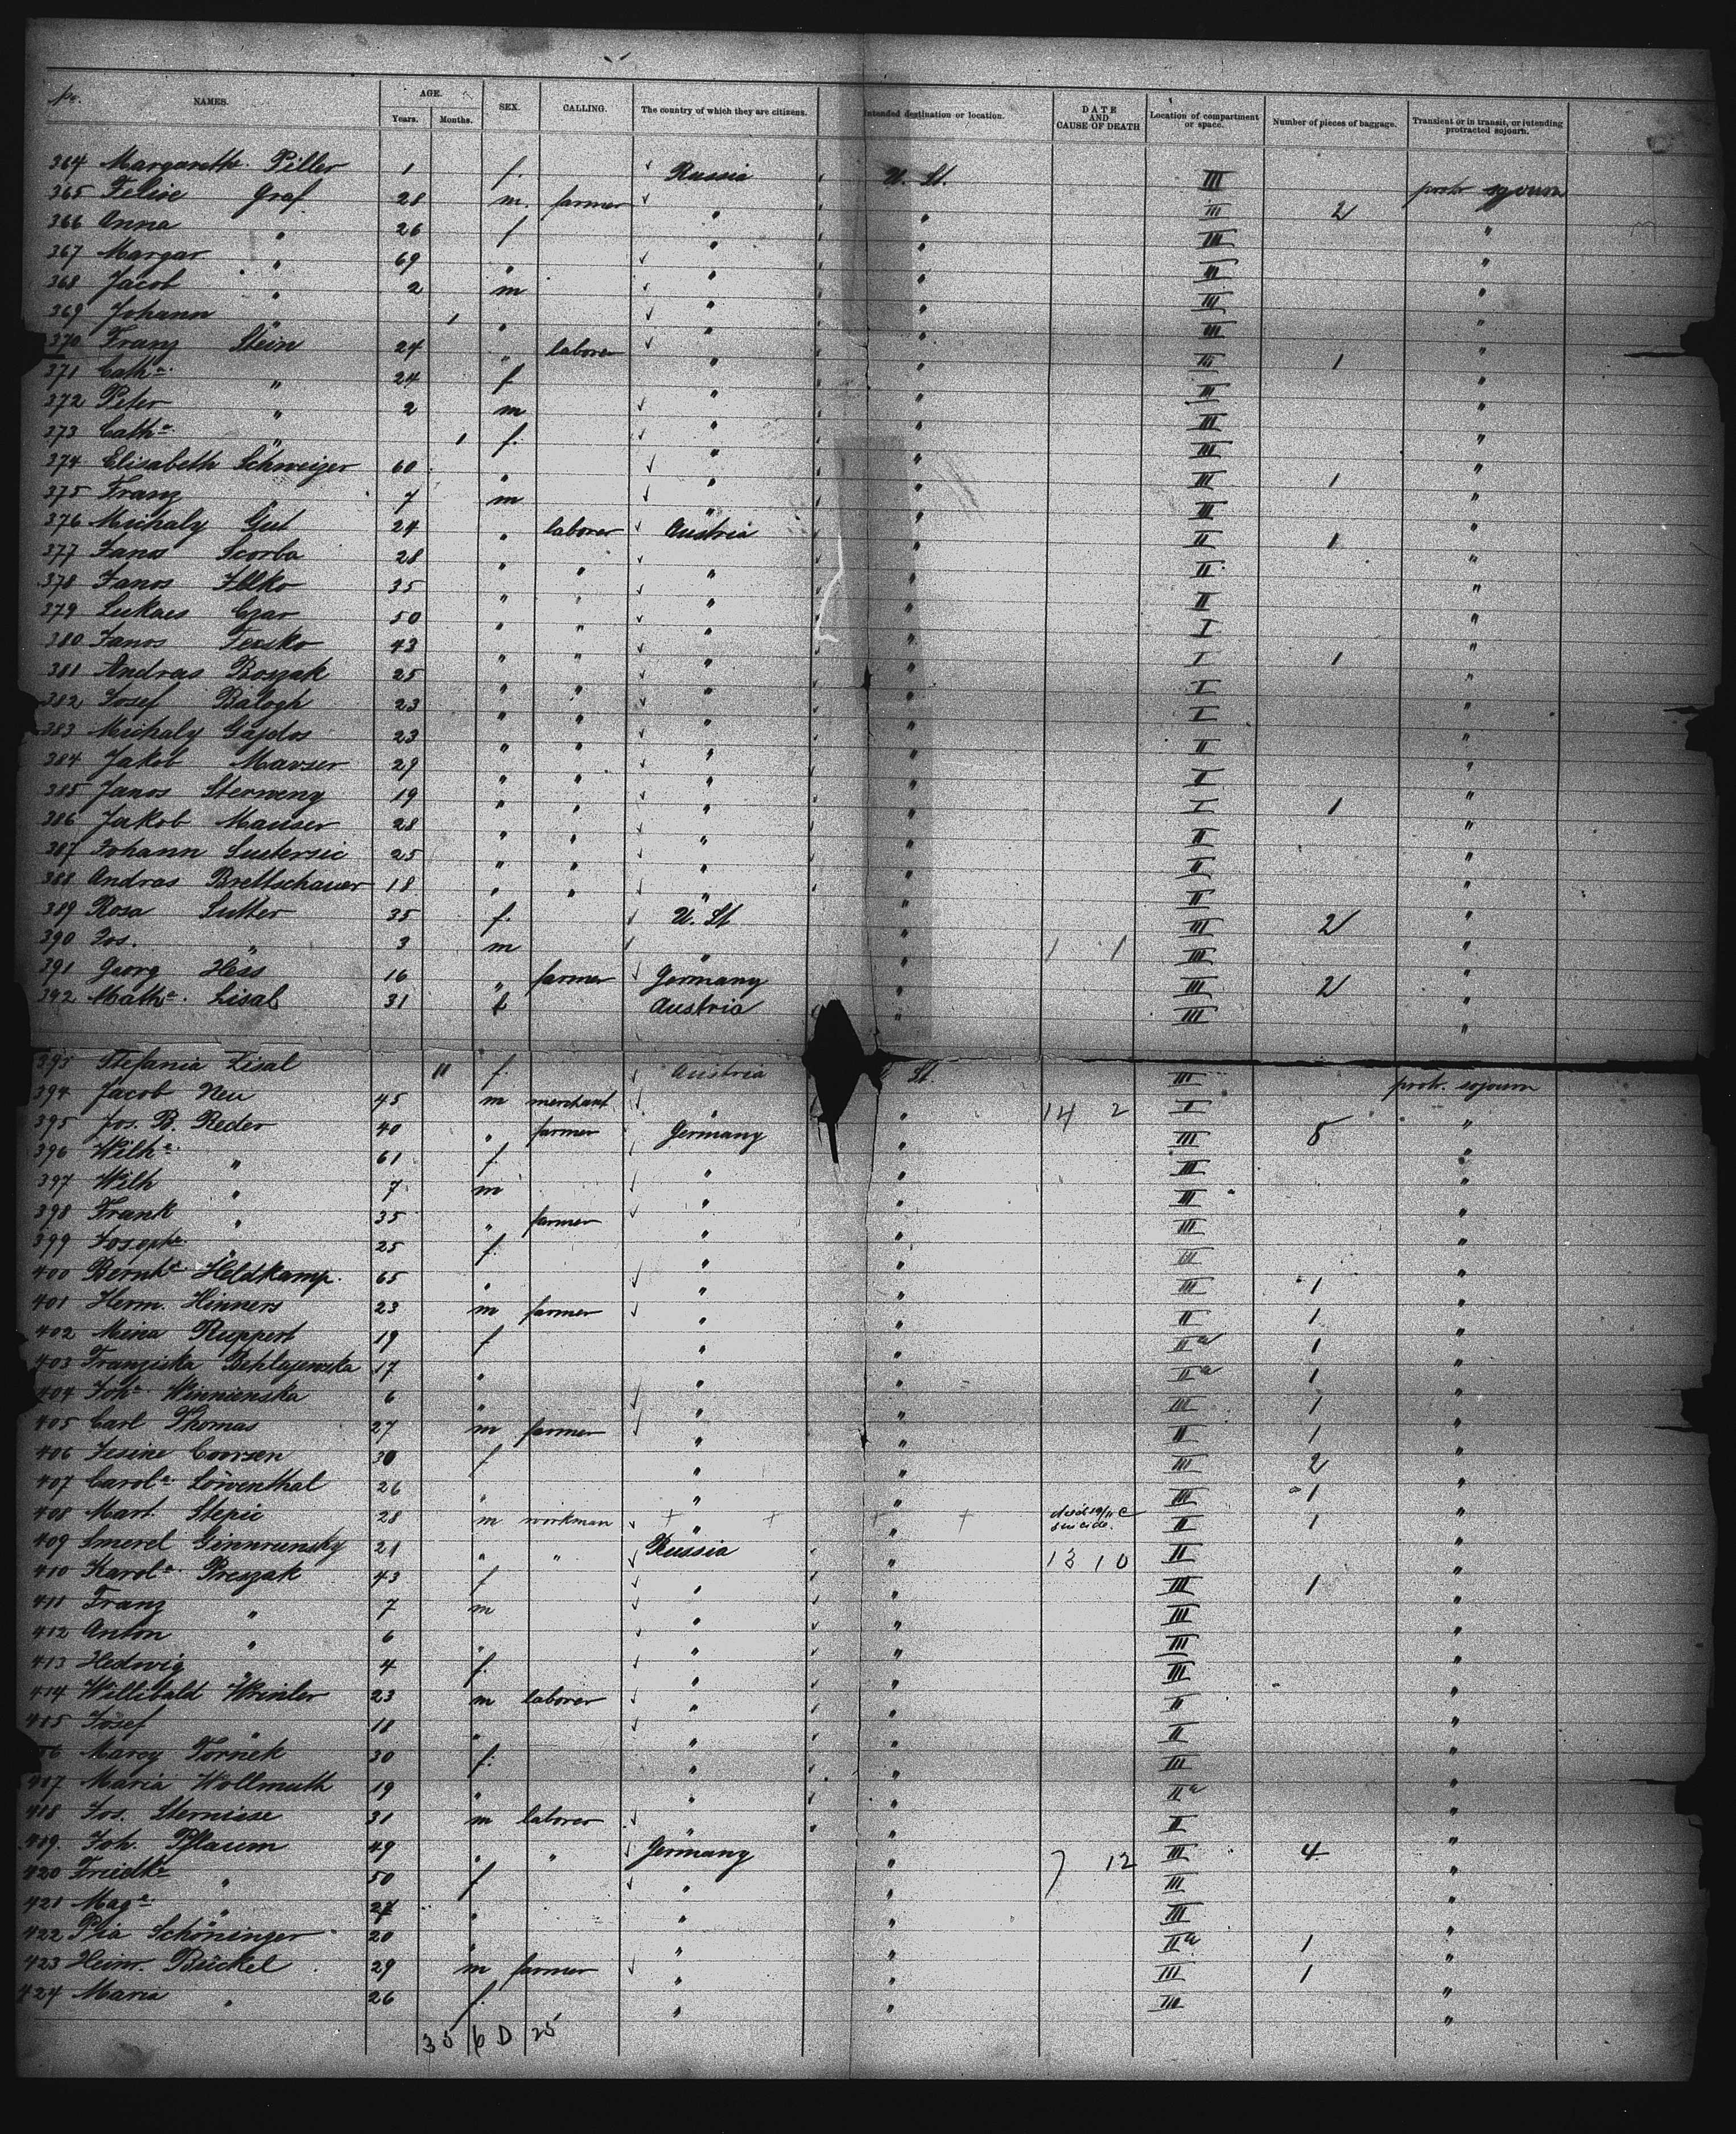 No. NAMES. AGE. Years. Months. SEX. CALLING. The country of which they are citizens. Intended destination or location. DATE AND CAUSE OF DEATH Location of compartment or space. Number of pieces of baggage. Transient or in transit, or intending protracted sojourn.
364 Margarethe Piller 1 f. Russia U. St. III protr. sojourn
365 Felix Graf 28 m. farmer " " III 2 "
366 Anna " 26 f " " III "
367 Margar " 69 " " " III "
368 Jacob " 2 m " " III "
369 Johann " 1 " " " III "
370 Franz Stein 24 " laborer " " III 1 "
371 Cath.e " 24 f " " III "
372 Peter " 2 m " " III "
373 Cath.e " 1 f. " " III "
374 Elisabeth Schweizer 60 " " " III 1 "
375 Franz " 7 m " " III "
376 Michaly Gut 24 " laborer Austria " II 1 "
377 Janos Scorba 28 " " " " II "
378 Janos Illko 35 " " " " II "
379 Lukacs Czar 50 " " " " I "
380 Janos Fesko 43 " " " " I 1 "
381 Andras Boszak 25 " " " " I "
382 Josef Balogh 23 " " " " I "
383 Michaly Gajdos 23 " " " " II "
384 Jakob Mavser 29 " " " " II "
385 Janos Sterweny 19 " " " " I 1 "
386 Jakob Mauser 28 " " " " II "
387 Johann Sustersic 25 " " " " II "
388 Andras Brettschauer 18 " " " " II "
389 Rosa Sutter 35 f. U. St " III 2 "
390 Jos. " 3 m " " 1 1 III "
391 Georg Hess 16 " farmer Germany " III 2 "
392 Math.e Lisal 31 f Austria " III "
393 Stefania Lisal 11 f. Austria St. III protr. sojourn
394 Jacob Neu 45 m merchant " " 14 2 I "
395 Jos. B. Reder 40 " farmer Germany " III 5 "
396 Wilh.e " 61 f. " " III "
397 Wilh " 7 m " " III "
398 Frank " 35 " farmer " " III "
399 Josephe " 25 f. " " III "
400 Bernh.e Heldkamp. 65 " " " III 1 "
401 Herm. Hinners 23 m farmer " " II 1 "
402 Mina Ruppert 19 f " " IIa 1 "
403 Franziska Behlajewska 17 " " " IIa 1 "
404 Joh.e Winnienska 6 " " " III 1 "
405 Carl Thomas 27 m farmer " " II 1 "
406 Jesine Coorsen 30 f " " III 2 "
407 Carol.e Löwenthal 26 " " " III 1 "
408 Mart. Stepic 28 m workman " " suicide. II 1 "
409 Smerel 21 " " Russia " 13 10 II "
410 Karol.e Preszak 43 f " " III 1 "
411 Franz " 7 m " " III "
412 Anton " 6 " " " III "
413 Hedwig " 4 f. " " III "
414 Willibald Winter 23 m laborer " " II "
415 Josef " 18 " " " II "
16 Maroy Tornek 30 f. " " III "
417 Maria Wollmuth 19 " " " IIa "
418 Jos. Sternisse 31 m laborer " " II "
419. Joh. Pflaum 49 " " Germany " 7 12 III 4 "
420 Friedke " 50 f " " III "
421 Mag.e " 27 " " " III "
422 Pia Schöninger 20 " " " IIa 1 "
423 Heinr. Bückel 29 m farmer " " III 1 "
424 Maria " 26 f. " " III "
35 6 D 25